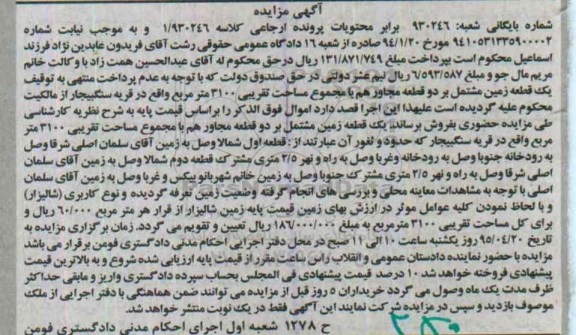 آگهی مزایده
شماره بایگانی شعبه: ۹۳۰۲۴۶ برابر محتویات پرونده ارجاعی کلاسه ۱/۹۳۰۲۴۶ و به موجب نیابت شماره
۹۴۱۰۵۳۱۳۳۵۹۰۰۰۰۲ مورخ ۹۴/۱/۲۰ صادره از شعبه ۱۶ دادگاه عمومی حقوقی رشت آقای فریدون عابدین نژاد فرزند
اسماعیل محکوم است بپرداخت مبلغ ۱۳۱/۸۷۱/۷۴۹ ریال درحق محکوم له آقای عبدالحسین همت زاد با وکالت خانم
مریم مال جو و مبلغ ۶/۵۹۳/۵۸۷ ریال نیم عشر دولتی در حق صندوق دولت که با توجه به عدم پرداخت منتهی به توقیف
یک قطعه زمین مشتمل بر دو قطعه مجاور هم با مجموع مساحت تقریبی ۳۱۰۰ متر مربع واقع در قریه سنگبیجار از مالکیت
محکوم علیه گردیده است علیهذا این اجرا قصد دارد اموال فوق الذکر را براساس قیمت پایه به شرح نظریه کارشناسی
طی مزایده حضوری بفروش برساند. یک قطعه زمین مشتمل بر دو قطعه مجاور هم با مجموع مساحت تقریبی ۳۱۰۰ متر
مربع واقع در قریه سنگبیجار که حدود و ثغور آن عبارتند از: قطعه اول شمالا وصل به زمین آقای سلمان اصلی شرقا وصل
به رودخانه جنوبا وصل به رودخانه وغربا وصل به راه و نهر ۲/۵ متری مشترک قطعه دوم شمالا وصل به زمین آقای سلمان
اصلی شرقا وصل به راه و نهر ۲/۵ متری مشترک جنوبا وصل به زمین خانم شهربانو بیکس و غربا وصل به زمین آقای سلمان
اصلی با توجه به مشاهدات معاینه محلی و بررسی های انجام گرفته وضعیت زمین تعرفه گردیده و نوع کاربری (شالیزار)
و با لحاظ نمودن کلیه عوامل موثر در ارزش بهای زمین قیمت پایه زمین شالیزار از قرار هر متر مربع ۶۰/۰۰۰ ریال و
برای کل مساحت تقریبی ۳۱۰۰مترمربع به مبلغ ۱۸۶/۰۰۰/۰۰۰ ریال تعیین و تقویم می گردد. زمان برگزاری مزایده به
تاریخ ۹۵/۰۴/۲۰ روز یکشنبه ساعت ۱۰ الی ۱۱ صبح در محل دفتر اجرایی احکام مدنی دادگستری فومن برقرار می باشد
مزایده با حضور نماینده دادستان عمومی و انقلاب راس ساعت مقرر از قیمت پایه ارزیابی شده شروع و به بالاترین قیمت
پیشنهادی فروخته خواهد شد ۱۰ درصد قیمت پیشنهادی فی المجلس بحساب سپرده دادگستری واریز و مابقی حداکثر
ظرف مدت یک ماه وصول می گردد خریداران ۵ روز قبل از مزایده می توانند ضمن هماهنگی با دفتر اجرایی از ملک
موصوف بازدید و سپس در مزایده شرکت نمایند این آگهی فقط در یک نوبت منتشر خواهد شد.
ح ۱۲۷۸ شعبه اول اجرای احکام مدنی دادگستری فومن